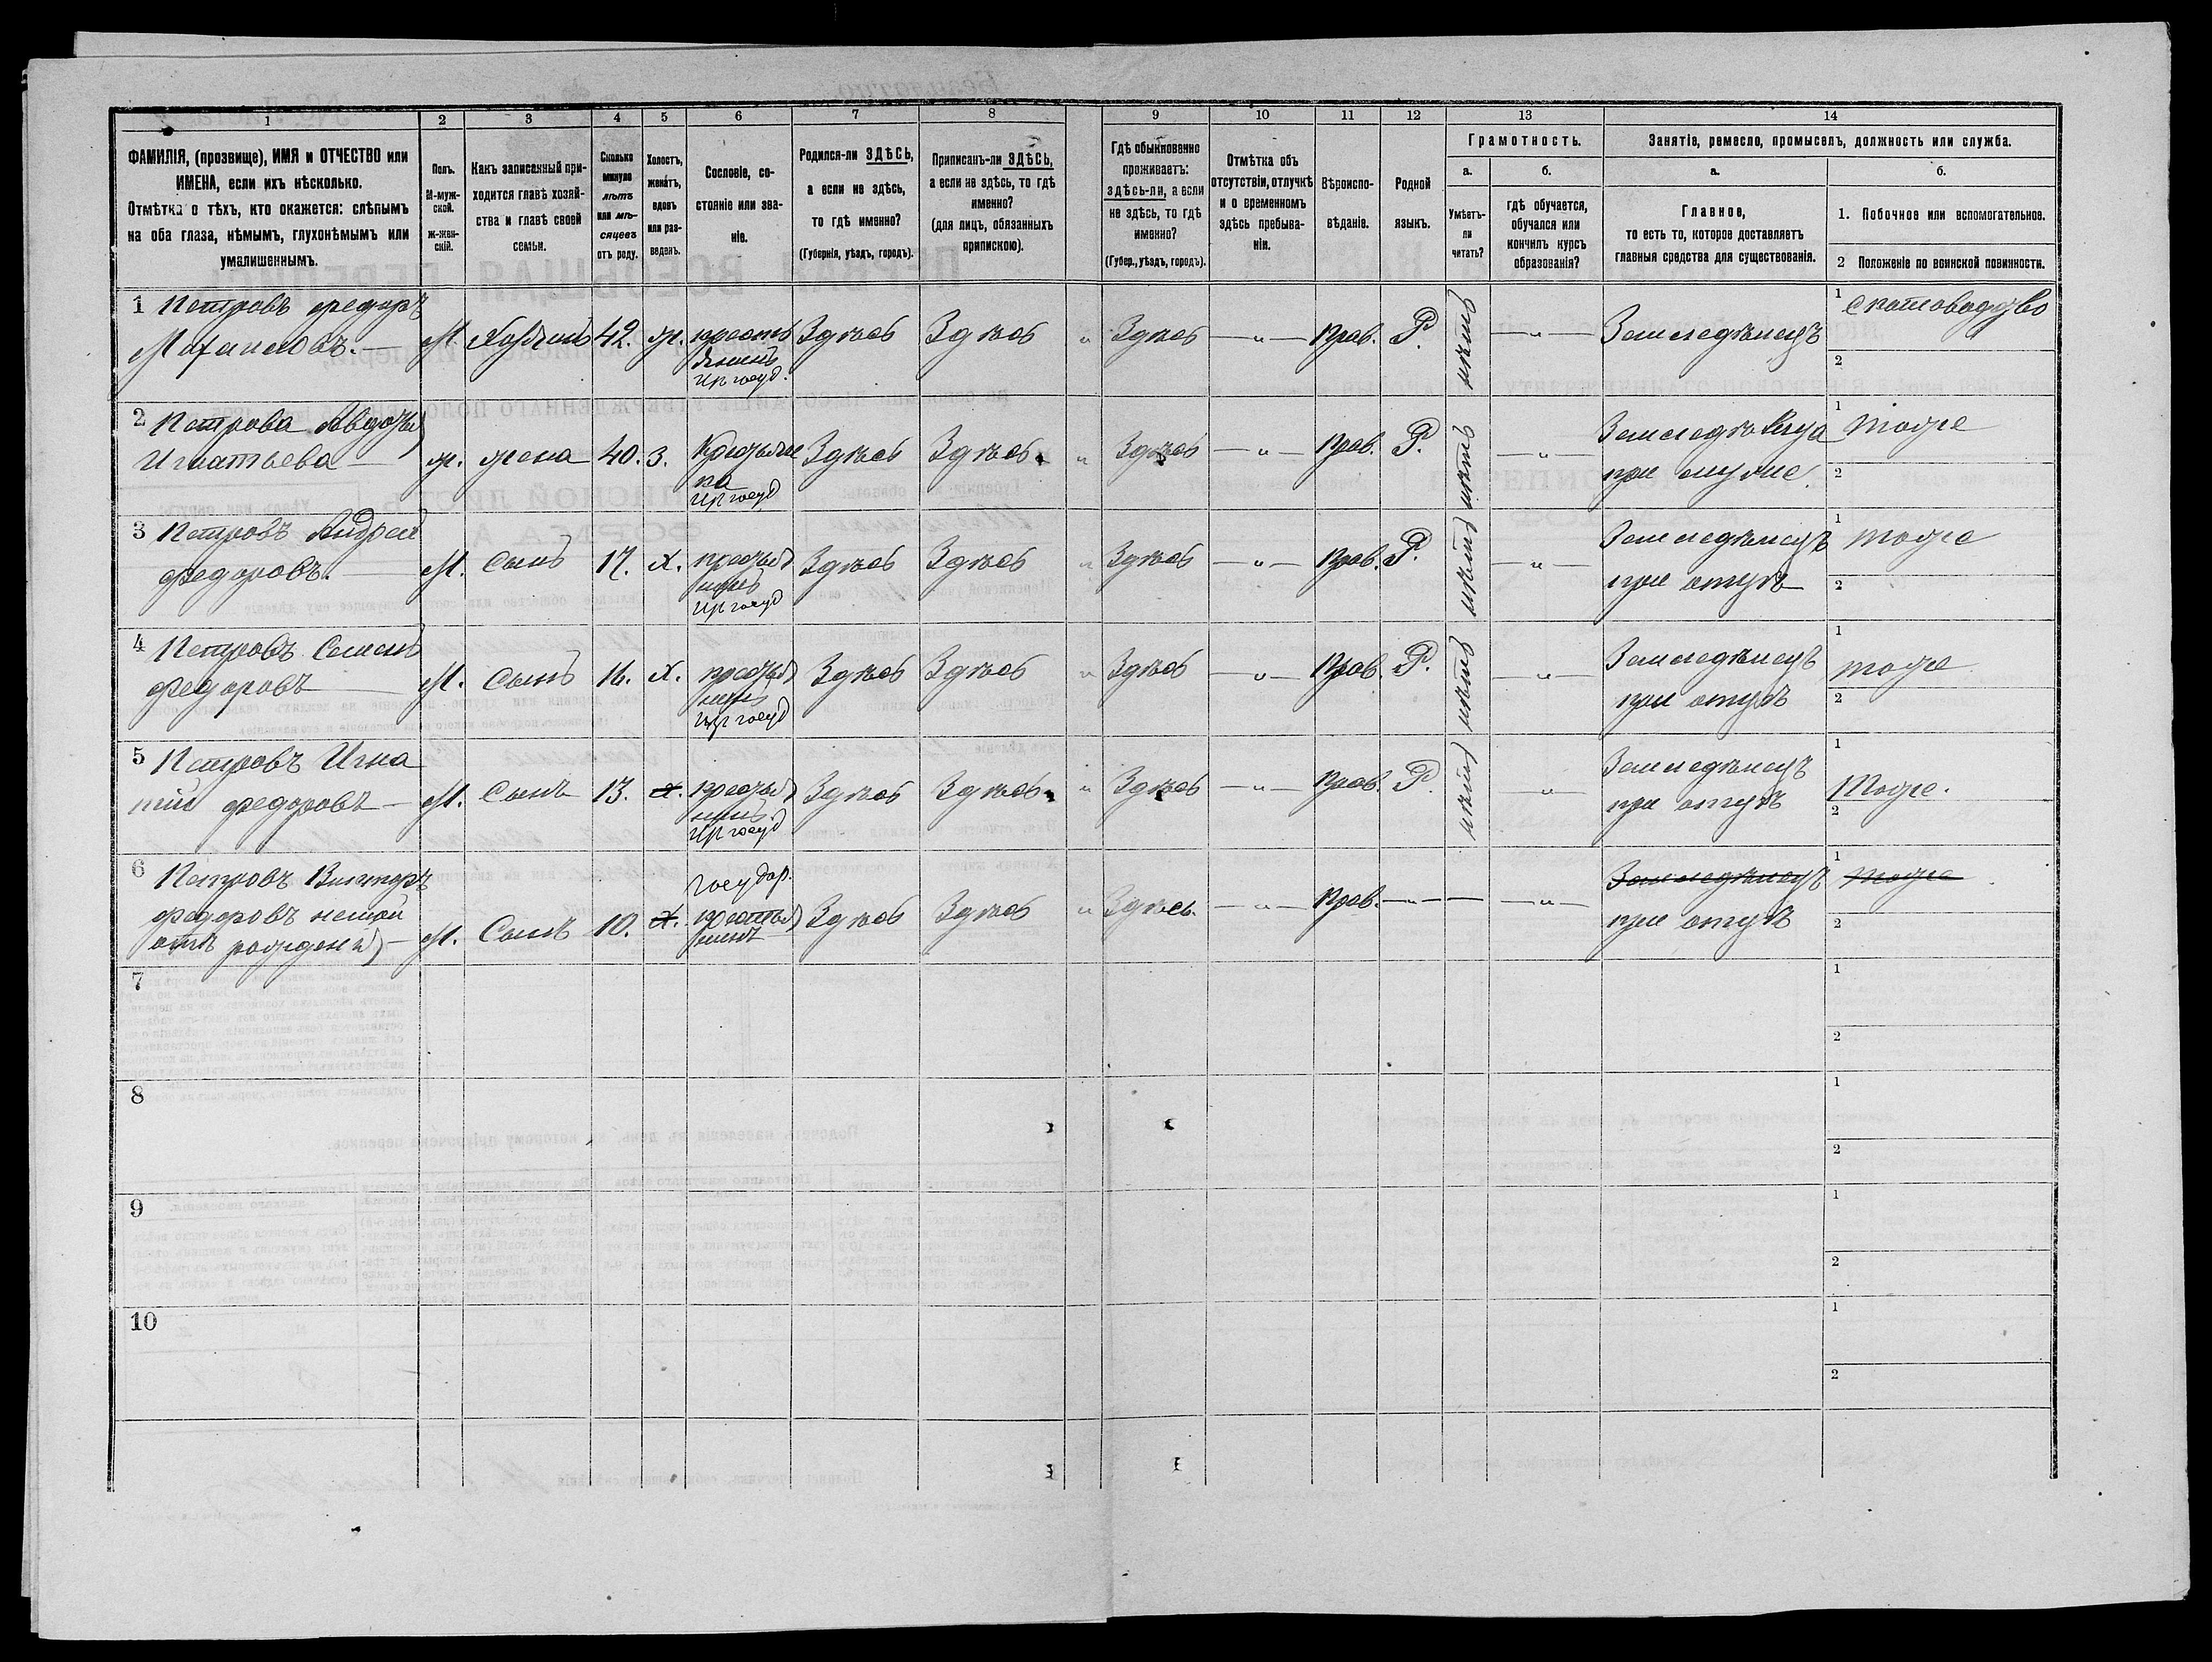 1
2
3
4
5
6
7
8
9
10
11
12
13
14
ФАМИЛІЯ, (прозвище), ИМЯ и ОТЧЕСТВО или
ИМЕНА, если ихъ нѣсколько.
Отмѣтка о тѣхъ, кто окажется: слѣпымъ
на оба глаза, нѣмымъ, глухонѣмымъ или
умалишеннымъ.
Полъ.
М-муж-
ской.
ж-жен-
скій.
Какъ записанный при-
ходится главѣ хозяй-
ства и главѣ своей
семьи.
Сколько
минуло
лѣтъ
или мѣ-
сяцевъ
отъ роду.
Холостъ,
женатъ,
вдовъ
или раз-
веденъ.
Сословіе, со-
стояніе или зва-
ніе.
Родился-ли ЗДѢСЬ,
а если не здѣсь,
то гдѣ именно?
(Губернія, уѣздъ, городъ).
Приписанъ-ли ЗДѢСЬ,
а если не здѣсь, то гдѣ
именно?
(для лицъ, обязанныхъ
припискою).
Гдѣ обыкновенно
проживаетъ:
здѣсь-ли, а если
не здѣсь, то гдѣ
именно?
(Губер., уѣздъ, городъ).
Отмѣтка объ
отсутствіи, отлучкѣ
и о временномъ
здѣсь пребыва-
ніи.
Вѣроиспо-
вѣданіе.
Родной
языкъ.
Грамотность.
а.
Умѣетъ-
ли
читать?
б.
гдѣ обучается,
обучался или
кончилъ курсъ
образованія?
Занятіе, ремесло, промыселъ, должность или служба.
а.
Главное,
то есть то, которое доставляетъ
главныя средства для существованія.
б.
1. Побочное или вспомогательное.
2 Положеніе по воинской повинности.
1 Петровъ Федоръ
М. Хозяинъ 42. ж. Здѣсь Здѣсь " Здѣсь — " — Прав. Р. нѣтъ — " — Земледѣлецъ
1 Скотоводство
2
2 Петрова Авдотья
Игнатьева — ж. жена 40. з. Крестьян
ка
Из госуд
Здѣсь Здѣсь " Здѣсь — " — Прав. Р. нѣтъ — " —
Земледѣлица
при мужѣ.
1 тоже
2
3 Петровъ Андрей
Федоровъ. — М. Сынъ 17. Х. крестья
нинъ
Из госуд
Здѣсь Здѣсь " Здѣсь — " — Прав. Р. нѣтъ — " —
Земледѣлецъ
при отцѣ
1 тоже
2
4 Петровъ Семенъ
Федоровъ — М. Сынъ 16. Х. крестья
нинъ
Из госуд
Здѣсь Здѣсь " Здѣсь — " — Прав. Р. нѣтъ — " —
Земледѣлецъ
при отцѣ
1 тоже
2
5 Петровъ Игна
тій Федоровъ — М. Сынъ 13. Х. крестья
нинъ.
Из госуд
Здѣсь Здѣсь " Здѣсь — " — Прав. Р. нѣтъ — " —
Земледѣлецъ
при отцѣ
1 Тоже.
2
6 Петровъ Викторъ
Федоровъ немой
отъ рожденія — М. Сынъ 10. Х. государ.
крестья
нинъ
Здѣсь Здѣсь " Здѣсь. — " — Прав. — " — — " —
Земледѣлецъ
при отцѣ
1 тоже
2
7
1
2
8
1
2
9
1
2
10
1
2